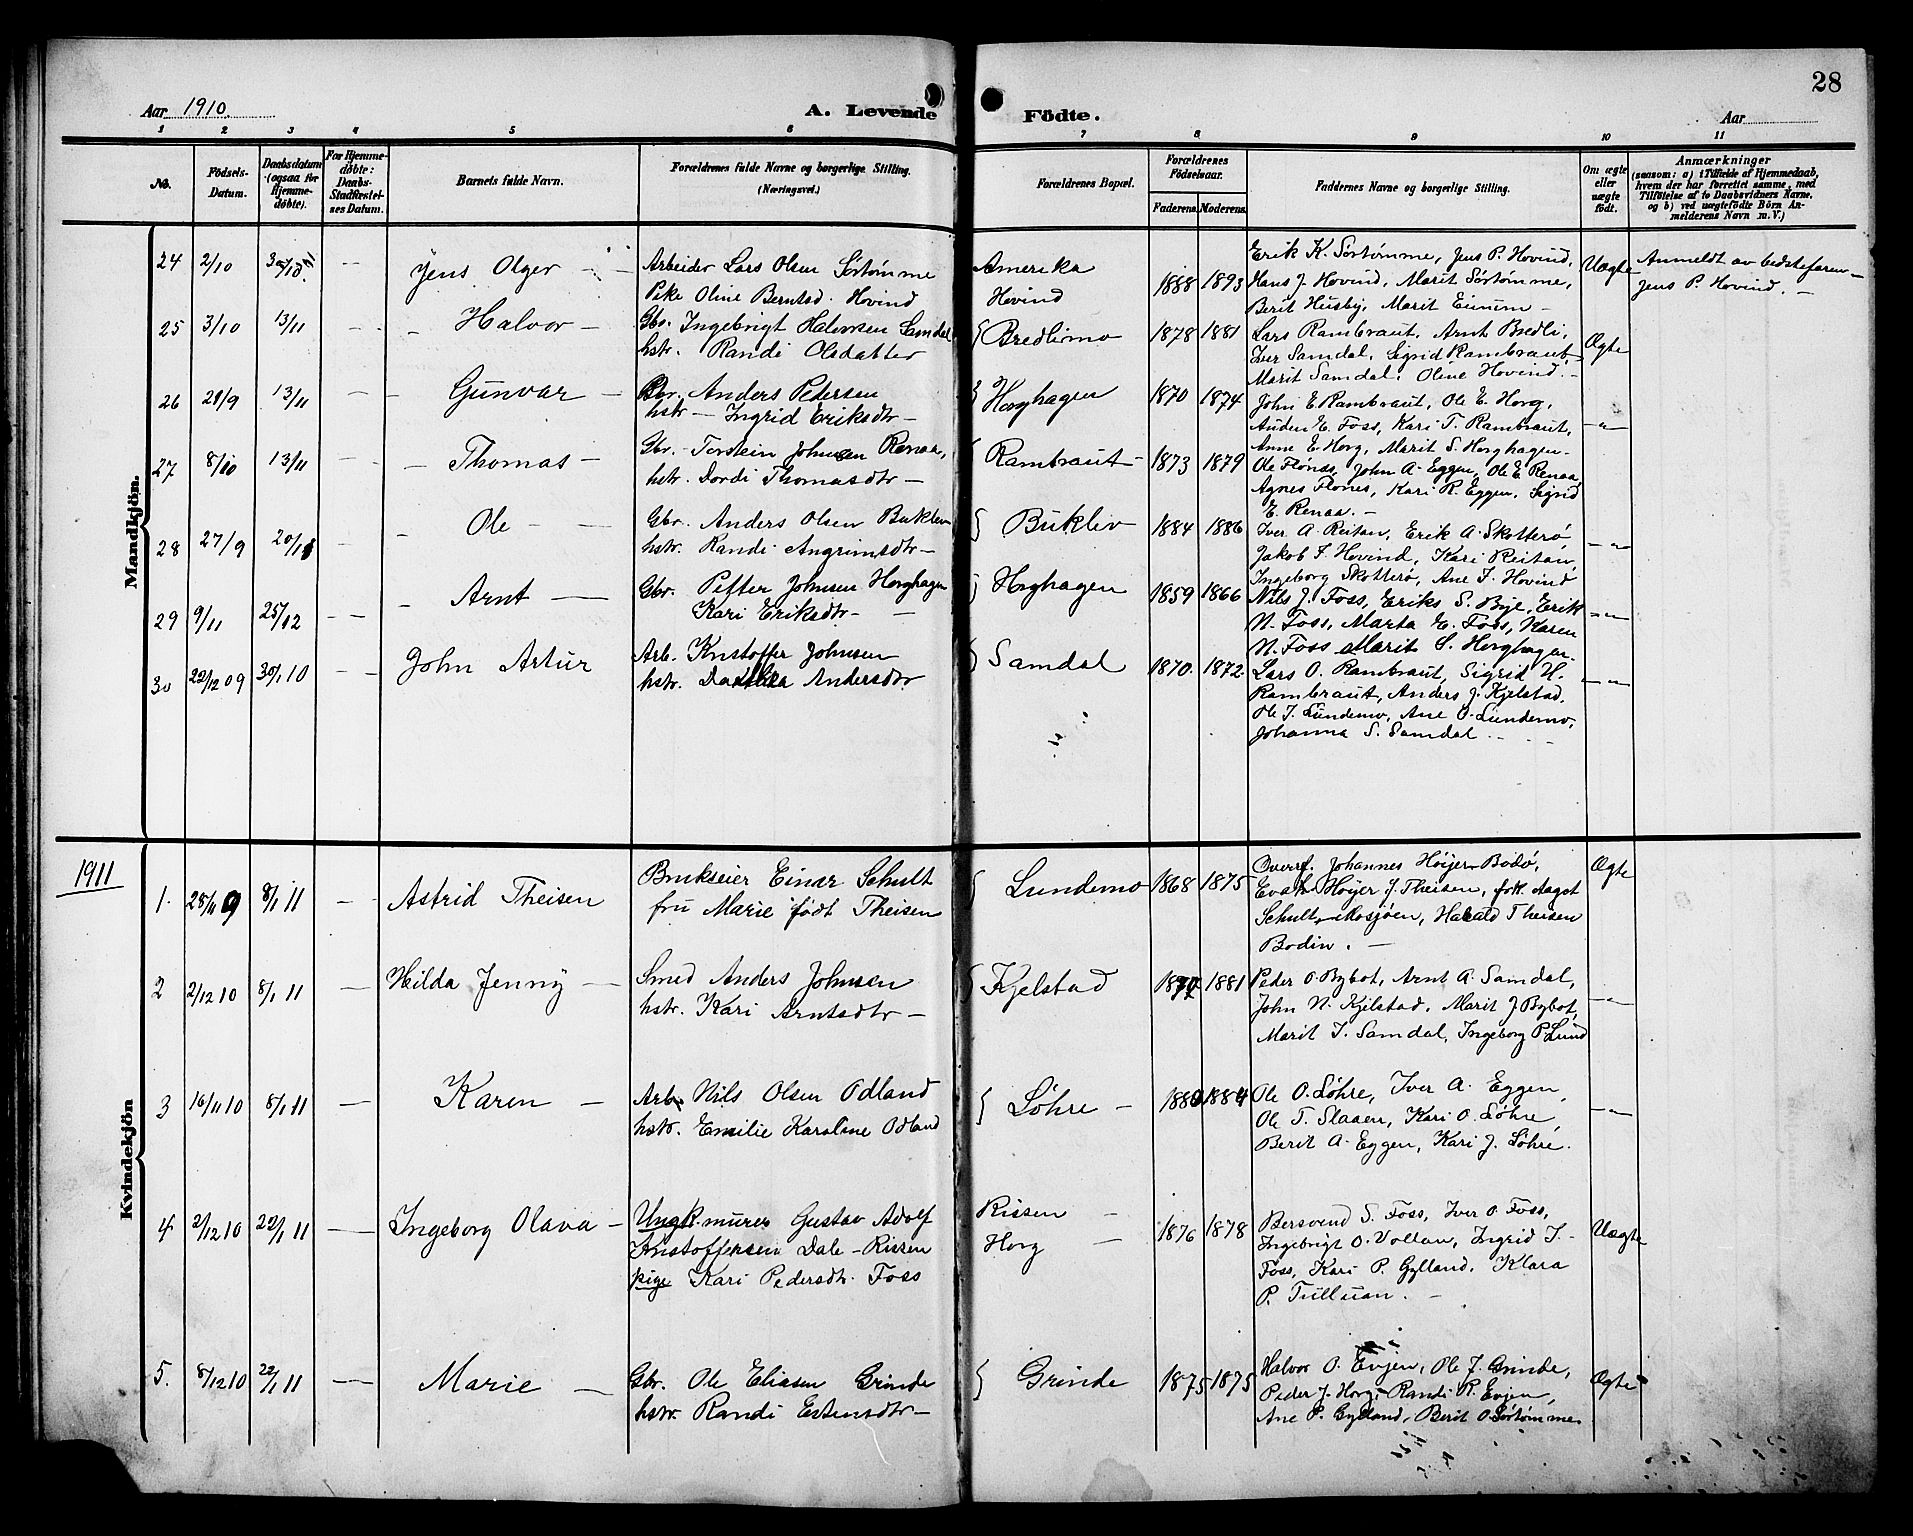 28
Aar 1910. A. Levende Födte. Aar
1 2 3 4 5 6 7 8 9 10 11
No. Födsels-Datum. Daabsdatum (ogsaa for Hjemmedöbte). For Hjemmedöbte: Daabs-Stadfæstelses Datum. Barnets fulde Navn. Forældrenes fulde Navne og borgerlige Stilling. (Næringsvei.) Forældrenes Bopæl. Forældrenes Födselsaar. Faderens. Moderens. Faddernes Navne og borgerlige Stilling. Om ægte eller uægte födt. Anmærkninger (saasom: a) i Tilfælde af Hjemmedaab, hvem der har forrettet samme, med Tilföielse af to Daabsvidners Navne, og b) ved uægtefödte Börn Anmelderens Navn m. V.)
Mandkjön.
24 2/10 30/10 — Jens Olger — Arbeider Lars Olsen Sørtømme
Pike Oline Berntsd. Hovind
Amerika
Hovind
1888 1893
Erik K. Sørtømme, Jens P. Hovind,
Hans J. Hovind, Marit Sørtømme,
Berit Husby, Marit Einum —
Uægte Anmeldt av bedstefaren —
Jens P. Hovind. —
25 3/10 13/11 — Halvor — Gbr. Ingebrigt Halvorsen Samdal
hstr. Randi Olsdatter
Bredlimo 1878 1881
Lars Rambraut, Arnt Bredli,
Iver Samdal, Sigrid Rambraut,
Marit Samdal, Oline Hovind. —
Ægte
26 21/9 13/11 — Gunvar — Gbr. Anders Petersen
hstr. — Ingrid Eriksdtr —
Horghagen 1870 1874
John E. Rambraut, Ole E. Horg,
Auden E. Foss, Kari T. Rambraut,
Anne E. Horg, Marit S. Horghagen —
—"—
27 8/10 13/11 — Thomas — Gbr. Torstein Johnsen Renaa,
hstr. Dordi Thomasdtr —
Rambraut — 1873 1879
Ole Flønes, John A. Eggen, Ole E. Renaa,
Agnes Flones, Kari R. Eggen, Sigrid
E. Renaa. —
28 27/9 20/11 — Ole — Gbr. Anders Olsen Bukliv
hstr. Randi Angrimsdtr —
Bukliv 1884 1886
Iver A. Reitan, Erik A. Skotterø
Jakob F. Hovind, Kari Reitan,
Ingeborg Skotterø, Ane F. Hovind
—"—
29 9/11 25/12 — Arnt — Gbr. Petter Johnsen Horghagen
Kari Eriksdtr —
Horghagen 1859 1866
Nils J. Foss, Eriks S. Bye, Erik
N. Foss, Marta E. Foss, Karen
N. Foss Marit S. Horghagen.
—"—
30 22/12 09 30/1 10 — John Artur Arb. Kristoffer Johnsen
hstr. Andersdtr
Samdal 1870. 1872.
Lars O. Rambraut, Sigrid H.
Rambraut, Anders J. Kjelstad,
Ole J. Lundemo, Ane O. Lundemo,
Johanna S. Samdal —
—"—
1911
Kvindekjön
1. 28/11 9 8/1 11 — Astrid Theisen Brukseier Einar Schult
fru Marie født Theisen
Lundemo 1868 1875
Overf. Johannes Høijer Bodø,
Eva Høyer f. Theisen, frk. Aagot
Schult Mosjøen, Harald Theisen
Bodin. —
Ægte
2 2/12 10 8/1 11 — Hilda Jenny — Smed Anders Johnsen
hstr. Kari Arntsdtr —
Kjelstad 1881
Peder O. Bybot, Arnt A. Samdal,
John N. Kjelstad, Marit J. Bybot,
Marit I. Samdal, Ingeborg P. Lund
—"—
3 16/11 10 8/1 11 — Karen — Arb. Nils Olsen Odland
hstr. Emilie Karoline Odland
Løhre — 1884
Ole O. Løhre, Iver A. Eggen,
Ole T. Slaaen, Kari O. Løhre,
Berit A. Eggen, Kari J. Løhre.
—"—
4 2/12 10 22/1 11 — Ingeborg Olava — Ungk. murer Gustav Adolf
Kristoffersen Dale — Rissen
pige Kari Pedersdtr. Foss
Rissen —
Horg —
1876 1878
Bersvend S. Foss, Iver O. Foss,
Ingebrigt O. Vollan, Ingrid I.
Foss, Kari P. Gylland, Klara
P. Tulluan. —
Uægte
5. 8/12 10 22/1 11 — Marie — Gbr. Ole Eliasen Grinde
hstr. Randi Estensdtr —
Grinde 1875 1875
Halvor O. Evjen, Ole J. Grinde,
Peder J. Horg, Randi R. Evjen,
Ane P. Gylland, Berit O. Sørtømme
Ægte